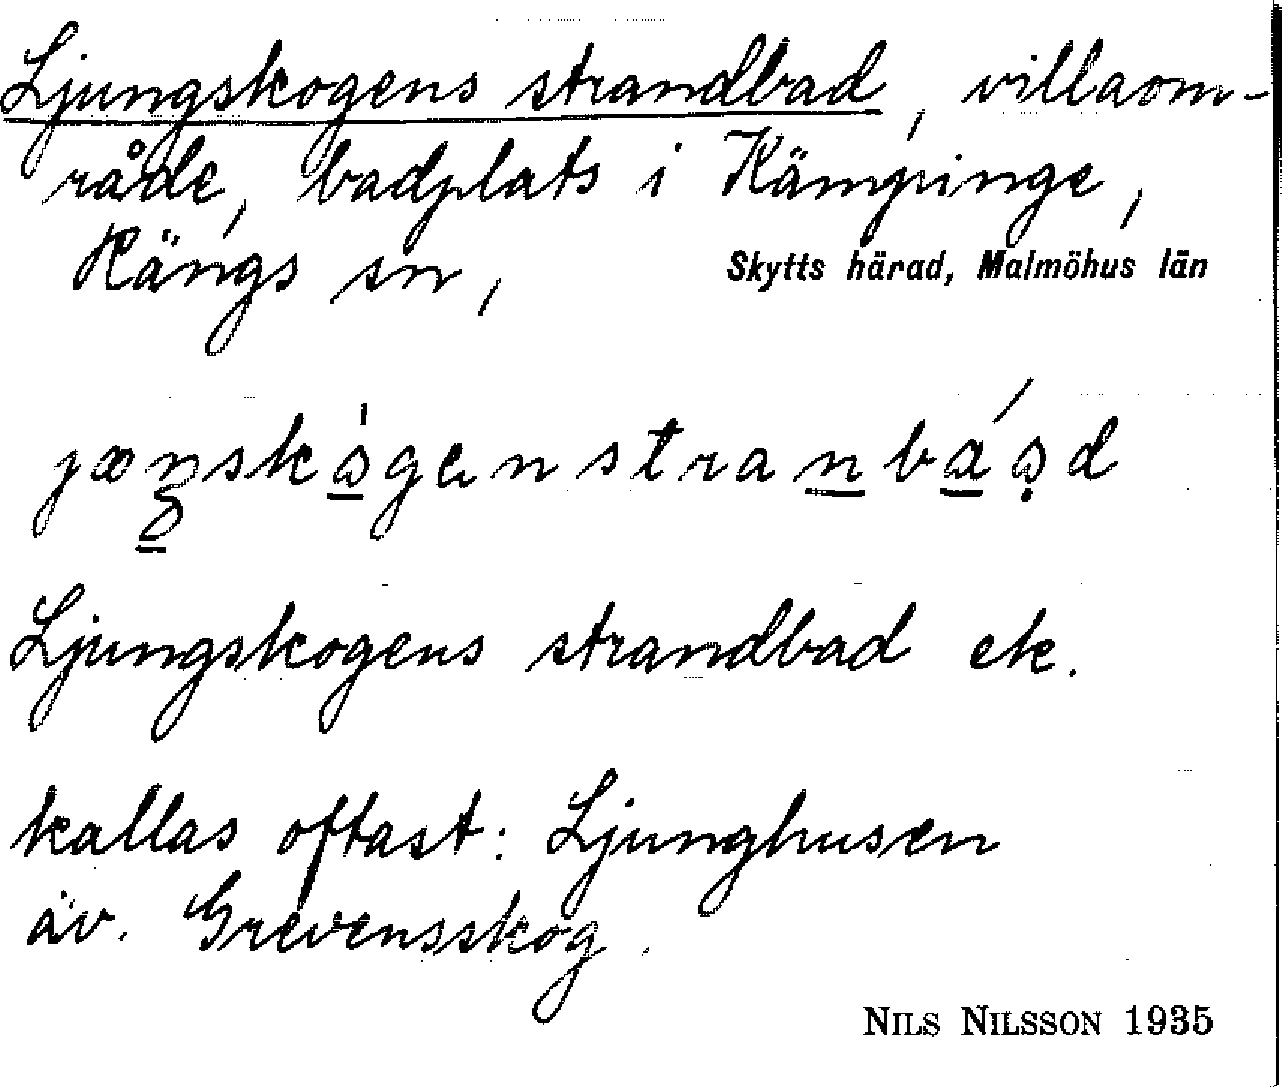 Ljungskogens strandbad, villaom-
råde, badplats i Kämpinge,
Rängs sn, Skytts härad, Malmöhus län
Ljungskogens strandbad ek.
kallas oftast: Ljunghusen
äv. Grevensskog.
NILS NILSSON 1935